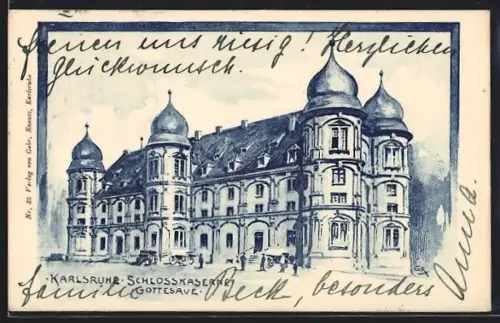 freuen uns riesig! Herzlichen
Glückwunsch.
Nr. 35 Verlag von Gebr. Knauss, Karlsruhe
KARLSRUHE · SCHLOSSKASERNE
GOTTESAUE ·
familie Beck, besonders
Anna.